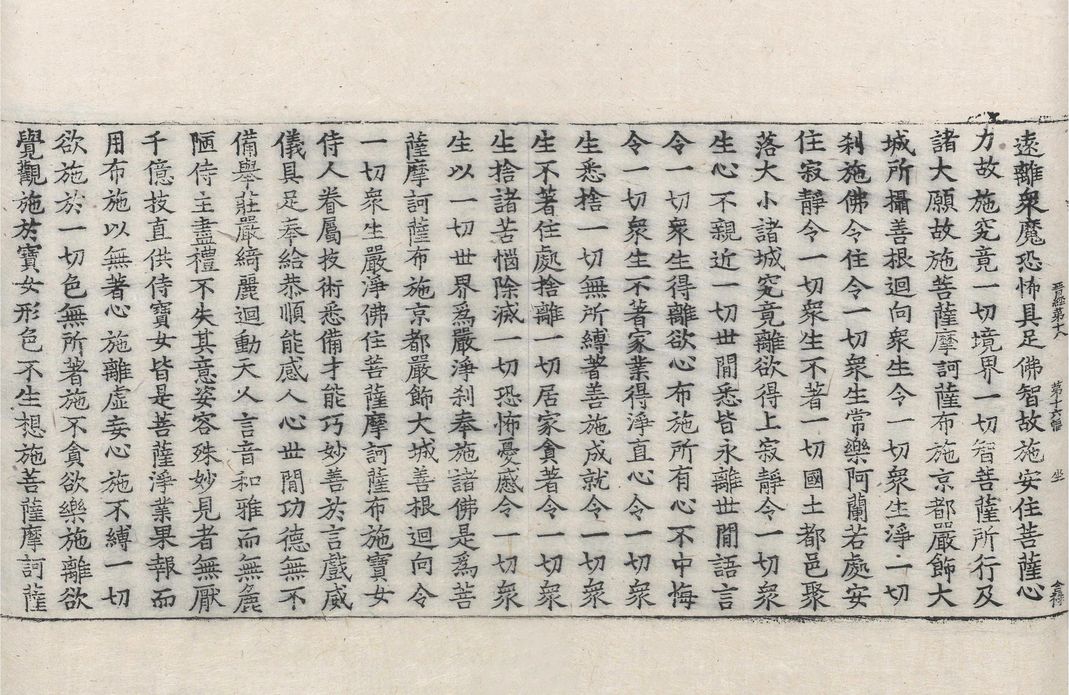 晉經第十八 第十六幅 坐
遠離衆魔恐怖具足佛智故施安住菩薩心
力故施究竟一切境界一切智菩薩所行及
諸大願故施菩薩摩訶薩布施京都嚴飾大
城所攝善根迴向衆生令一切衆生淨一切
刹施佛令住令一切衆生常樂阿蘭若處安
住寂靜令一切衆生不著一切國土都邑聚
落大小諸城究竟離欲得上寂靜令一切衆
生心不親近一切世間悉皆永離世間語言
令一切衆生得離欲心布施所有心不中悔
令一切衆生不著家業得淨直心令一切衆
生悉捨一切無所縛著善施成就令一切衆
生不著住處捨離一切居家貪著令一切衆
生捨諸苦惱除滅一切恐怖憂慼令一切衆
生以一切世界爲嚴淨刹奉施諸佛是爲菩
薩摩訶薩布施京都嚴飾大城善根迴向令
一切衆生嚴淨佛住菩薩摩訶薩布施寶女
侍人眷屬技術悉備才能巧妙善於言戲威
儀具足奉給恭順能感人心世間功德無不
備舉莊嚴綺麗迴動天人言音和雅而無麁
陋侍主盡禮不失其意姿容殊妙見者無厭
千億技直供侍寶女皆是菩薩淨業果報而
用布施以無著心施離虛妄心施不縛一切
欲施於一切色無所著施不貪欲樂施離欲
覺觀施於寶女形色不生想施菩薩摩訶薩